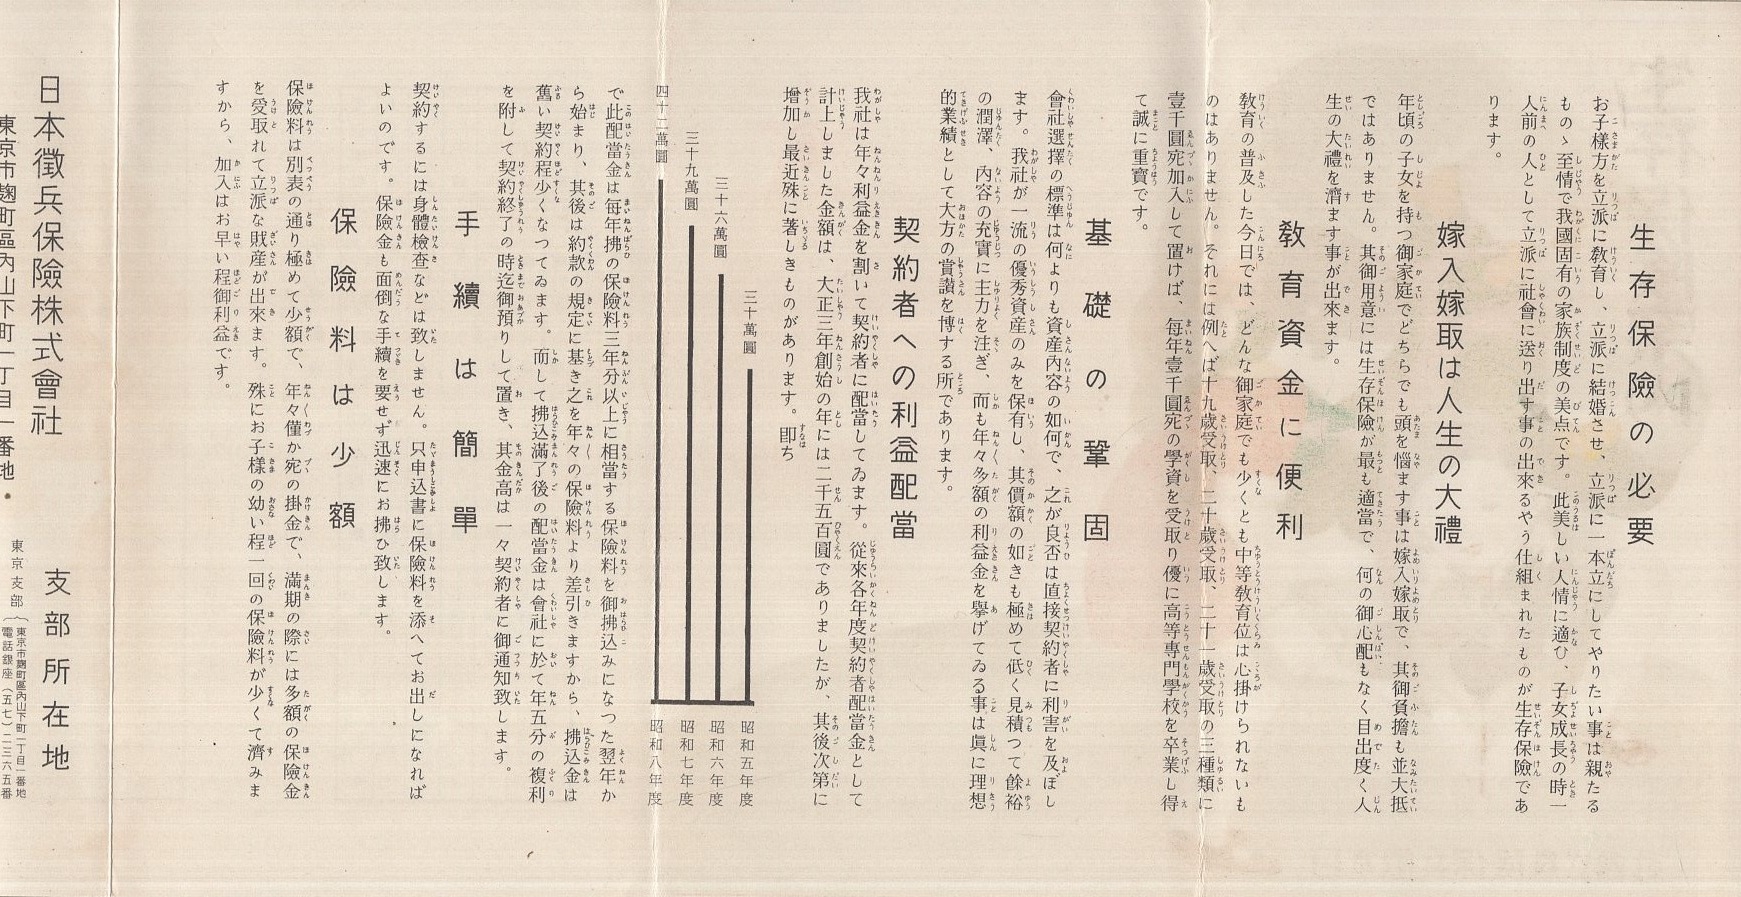 生存保險の必要
お子樣方を立派に敎育し、立派に結婚させ、立派に一本立にしてやりたい事は親たる
ものゝ至情で我國固有の家族制度の美点です。此美しい人情に適ひ、子女成長の時一
人前の人として立派に社會に送り出す事の出來るやう仕組まれたものが生存保險であ
ります。
嫁入嫁取は人生の大禮
年頃の子女を持つ御家庭でどちらでも頭を惱ます事は嫁入嫁取で、其御負擔も並大抵
ではありません。其御用意には生存保險が最も適當で、何の御心配もなく目出度く人
生の大禮を濟ます事が出來ます。
敎育資金に便利
敎育の普及した今日では、どんな御家庭でも少くとも中等敎育位は心掛けられないも
のはありません。それには例へば十九歲受取、二十歲受取、二十一歲受取の三種類に
壹千圓宛加入して置けば、每年壹千圓宛の學資を受取り優に高等專門學校を卒業し得
て誠に重寶です。
基礎の鞏固
會社選擇の標準は何よりも資産內容の如何で、之が良否は直接契約者に利害を及ぼし
ます。我社が一流の優秀資産のみを保有し、其價額の如きも極めて低く見積つて餘裕
の潤澤、內容の充實に主力を注ぎ、而も年々多額の利益金を擧げてゐる事は眞に理想
的業績として大方の賞讃を博する所であります。
契約者への利益配當
我社は年々利益金を割いて契約者に配當してゐます。從來各年度契約者配當金として
計上しました金額は、大正三年創始の年には二千五百圓でありましたが、其後次第に
增加し最近殊に著しきものがあります。卽ち
三十萬圓 昭和五年度
三十六萬圓 昭和六年度
三十九萬圓 昭和七年度
四十二萬圓 昭和八年度
で此配當金は每年拂の保險料三年分以上に相當する保險料を御拂込みになつた翌年か
ら始まり、其後は約款の規定に基き之を年々の保險料より差引きますから、拂込金は
舊い契約程少くなつてゐます。而して拂込滿了後の配當金は會社に於て年五分の複利
を附して契約終了の時迄御預りして置き、其金高は一々契約者に御通知致します。
手續は簡單
契約するには身體檢査などは致しません。只申込書に保險料を添へてお出しになれば
よいのです。保險金も面倒な手續を要せず迅速にお拂ひ致します。
保險料は少額
保險料は別表の通り極めて少額で、年々僅か宛の掛金で、滿期の際には多額の保險金
を受取れて立派な財産が出來ます。殊にお子樣の幼い程一回の保險料が少くて濟みま
すから、加入はお早い程御利益です。
日本徵兵保險株式會社 支部所在地
東京市麴町區內山下町一丁目一番地
東京支部 東京市麴町區內山下町一丁目一番地
電話銀座(五七)二三六五番